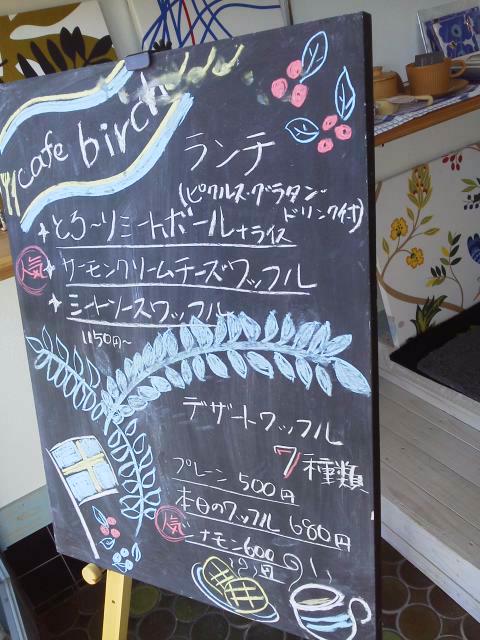 cafe birch
ランチ
(ピクルス・グラタン
ドリンク付)
とろ〜りミートボール+ライス
人気
サーモンクリームチーズワッフル
ミートソースワッフル
1150円〜
デザートワッフル
7種類
プレーン 500円
本日のワッフル 680円
人気
シナモン600